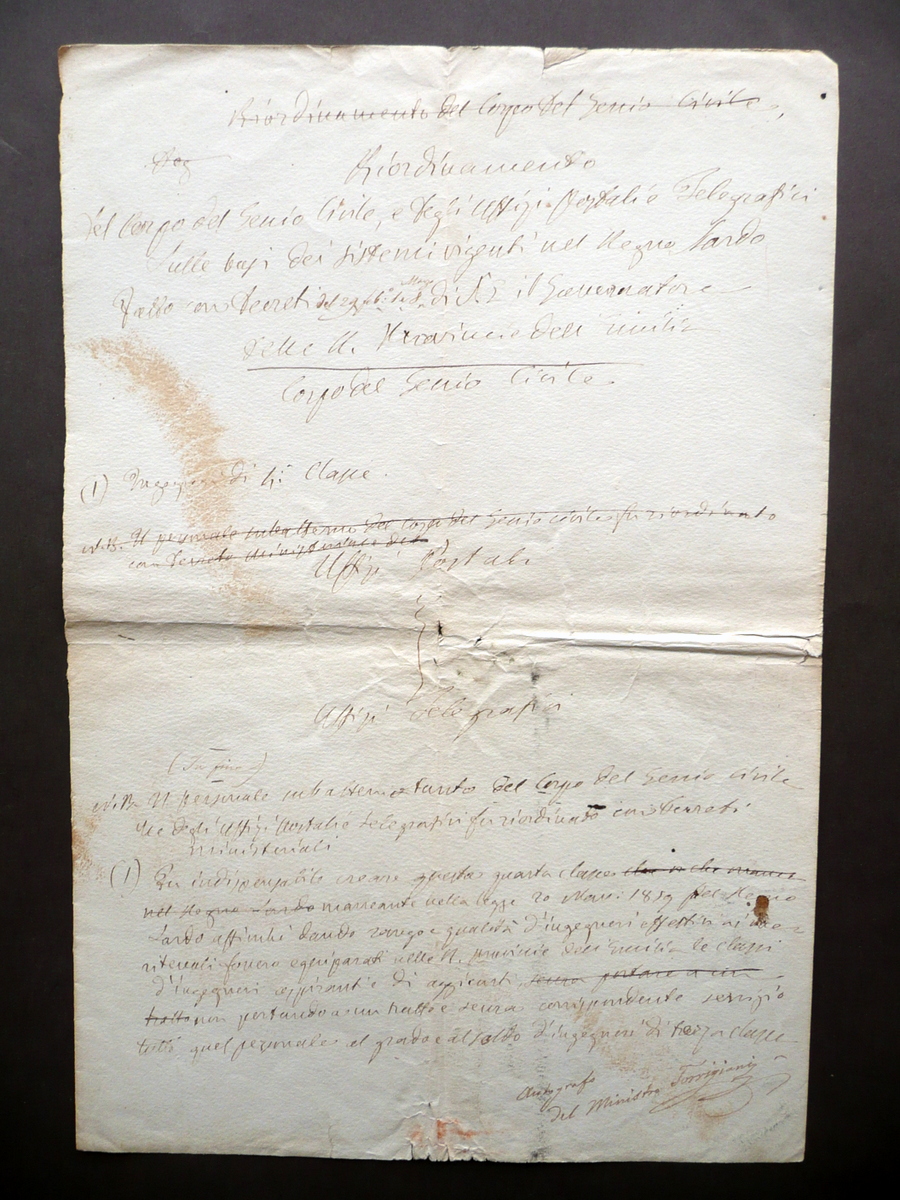 Riordinamento del Corpo del Genio Civile,
Riordinamento
del Corpo del Genio Civile, e degli Uffizi Postali e Telegrafici
Sulle basi dei sistemi vigenti nel Regno Sardo
fatto con Decreti del di S. E. il Governatore
delle R. Provincie dell' Emilia
Corpo del Genio Civile.
(1) Ingegneri di Classe.
N.B. Il personale subalterno del Corpo del Genio Civile fu riordinato
con Decreto ministeriale del
Uffizi Postali
Uffizi Telegrafici
(In fine)
N.B. Il personale subalterno tanto del Corpo del Genio Civile
che degli Uffizi Postali e Telegrafici fu riordinato con Decreti
ministeriali
(1) Era indispensabile creare questa quarta classe che
nel Regno Sardo mancante nella legge 20 Nov. 1859 del Regno
Sardo affinchè dando rango e qualità d'ingegneri effettivi ai
ritevoli fossero equiparati nelle R. Provincie dell' Emilia le classi
d'ingegneri aspiranti e di aggiunti, senza portare a un
tratto non portando a un tratto e senza corrispondente servizio
tutto quel personale al grado e al soldo d'ingegneri di terza classe
Autografo
del Ministro Torrigiani